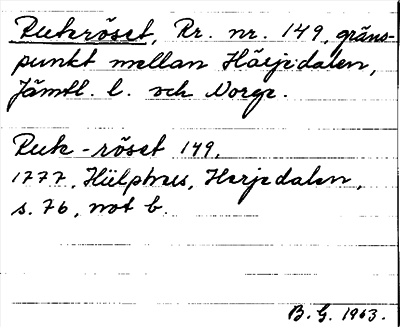 Rukröset, Rr. nr. 149, gräns-
punkt mellan Härjedalen,
Jämtl. l. och Norge.
Ruk-röset 149.
1777, Hülphers, Herjedalen,
s. 76, not b.
B. G. 1963.